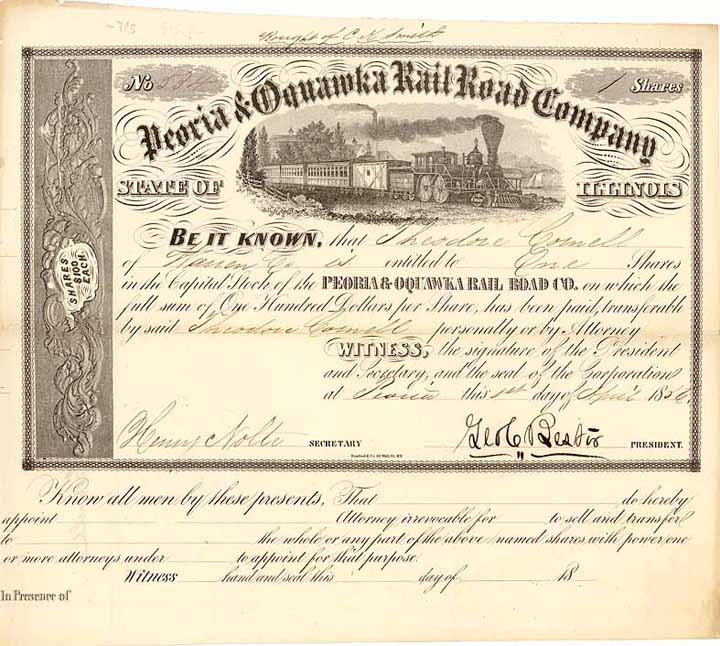 -705
Bought of C N Smith
No 534 1 Shares
Peoria & Oquawka Rail Road Company
STATE OF ILLINOIS
SHARES $100 EACH.
BE IT KNOWN, that Theodore Cornell
of Warren Co is entitled to One Shares
in the Capital Stock of the PEORIA & OQUAWKA RAIL ROAD CO. on which the
full sum of One Hundred Dollars per Share, has been paid, transferable
by said Theodore Cornell personally or by Attorney
WITNESS, the signature of the President
and Secretary, and the seal of the Corporation
at Peoria this 1st day of April 1856.
Henry Nolte SECRETARY Geo C Bestor PRESIDENT.
Know all men by these presents, That do hereby
appoint Attorney irrevocable for to sell and transfer
to the whole or any part of the above named shares with power one
or more attorneys under to appoint for that purpose.
Witness hand and seal this day of 18
In Presence of